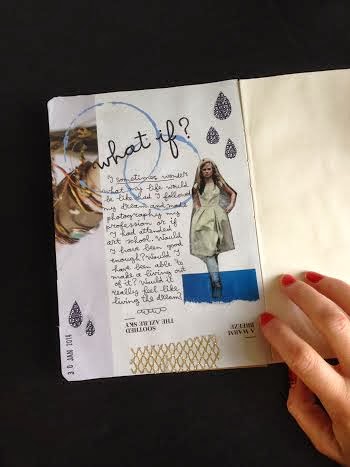 what if?
I sometimes wonder
what my life would
be like had I followed
my dream and made
photography my
profession or if
I had attended
art school. Would
I have been good
enough? Would I
have been able to
make a living out
of it? Would it
really feel like
living the dream?
SOOTHED
THE AZURE SKY
A WARM
BREEZE
30 JAN 2014